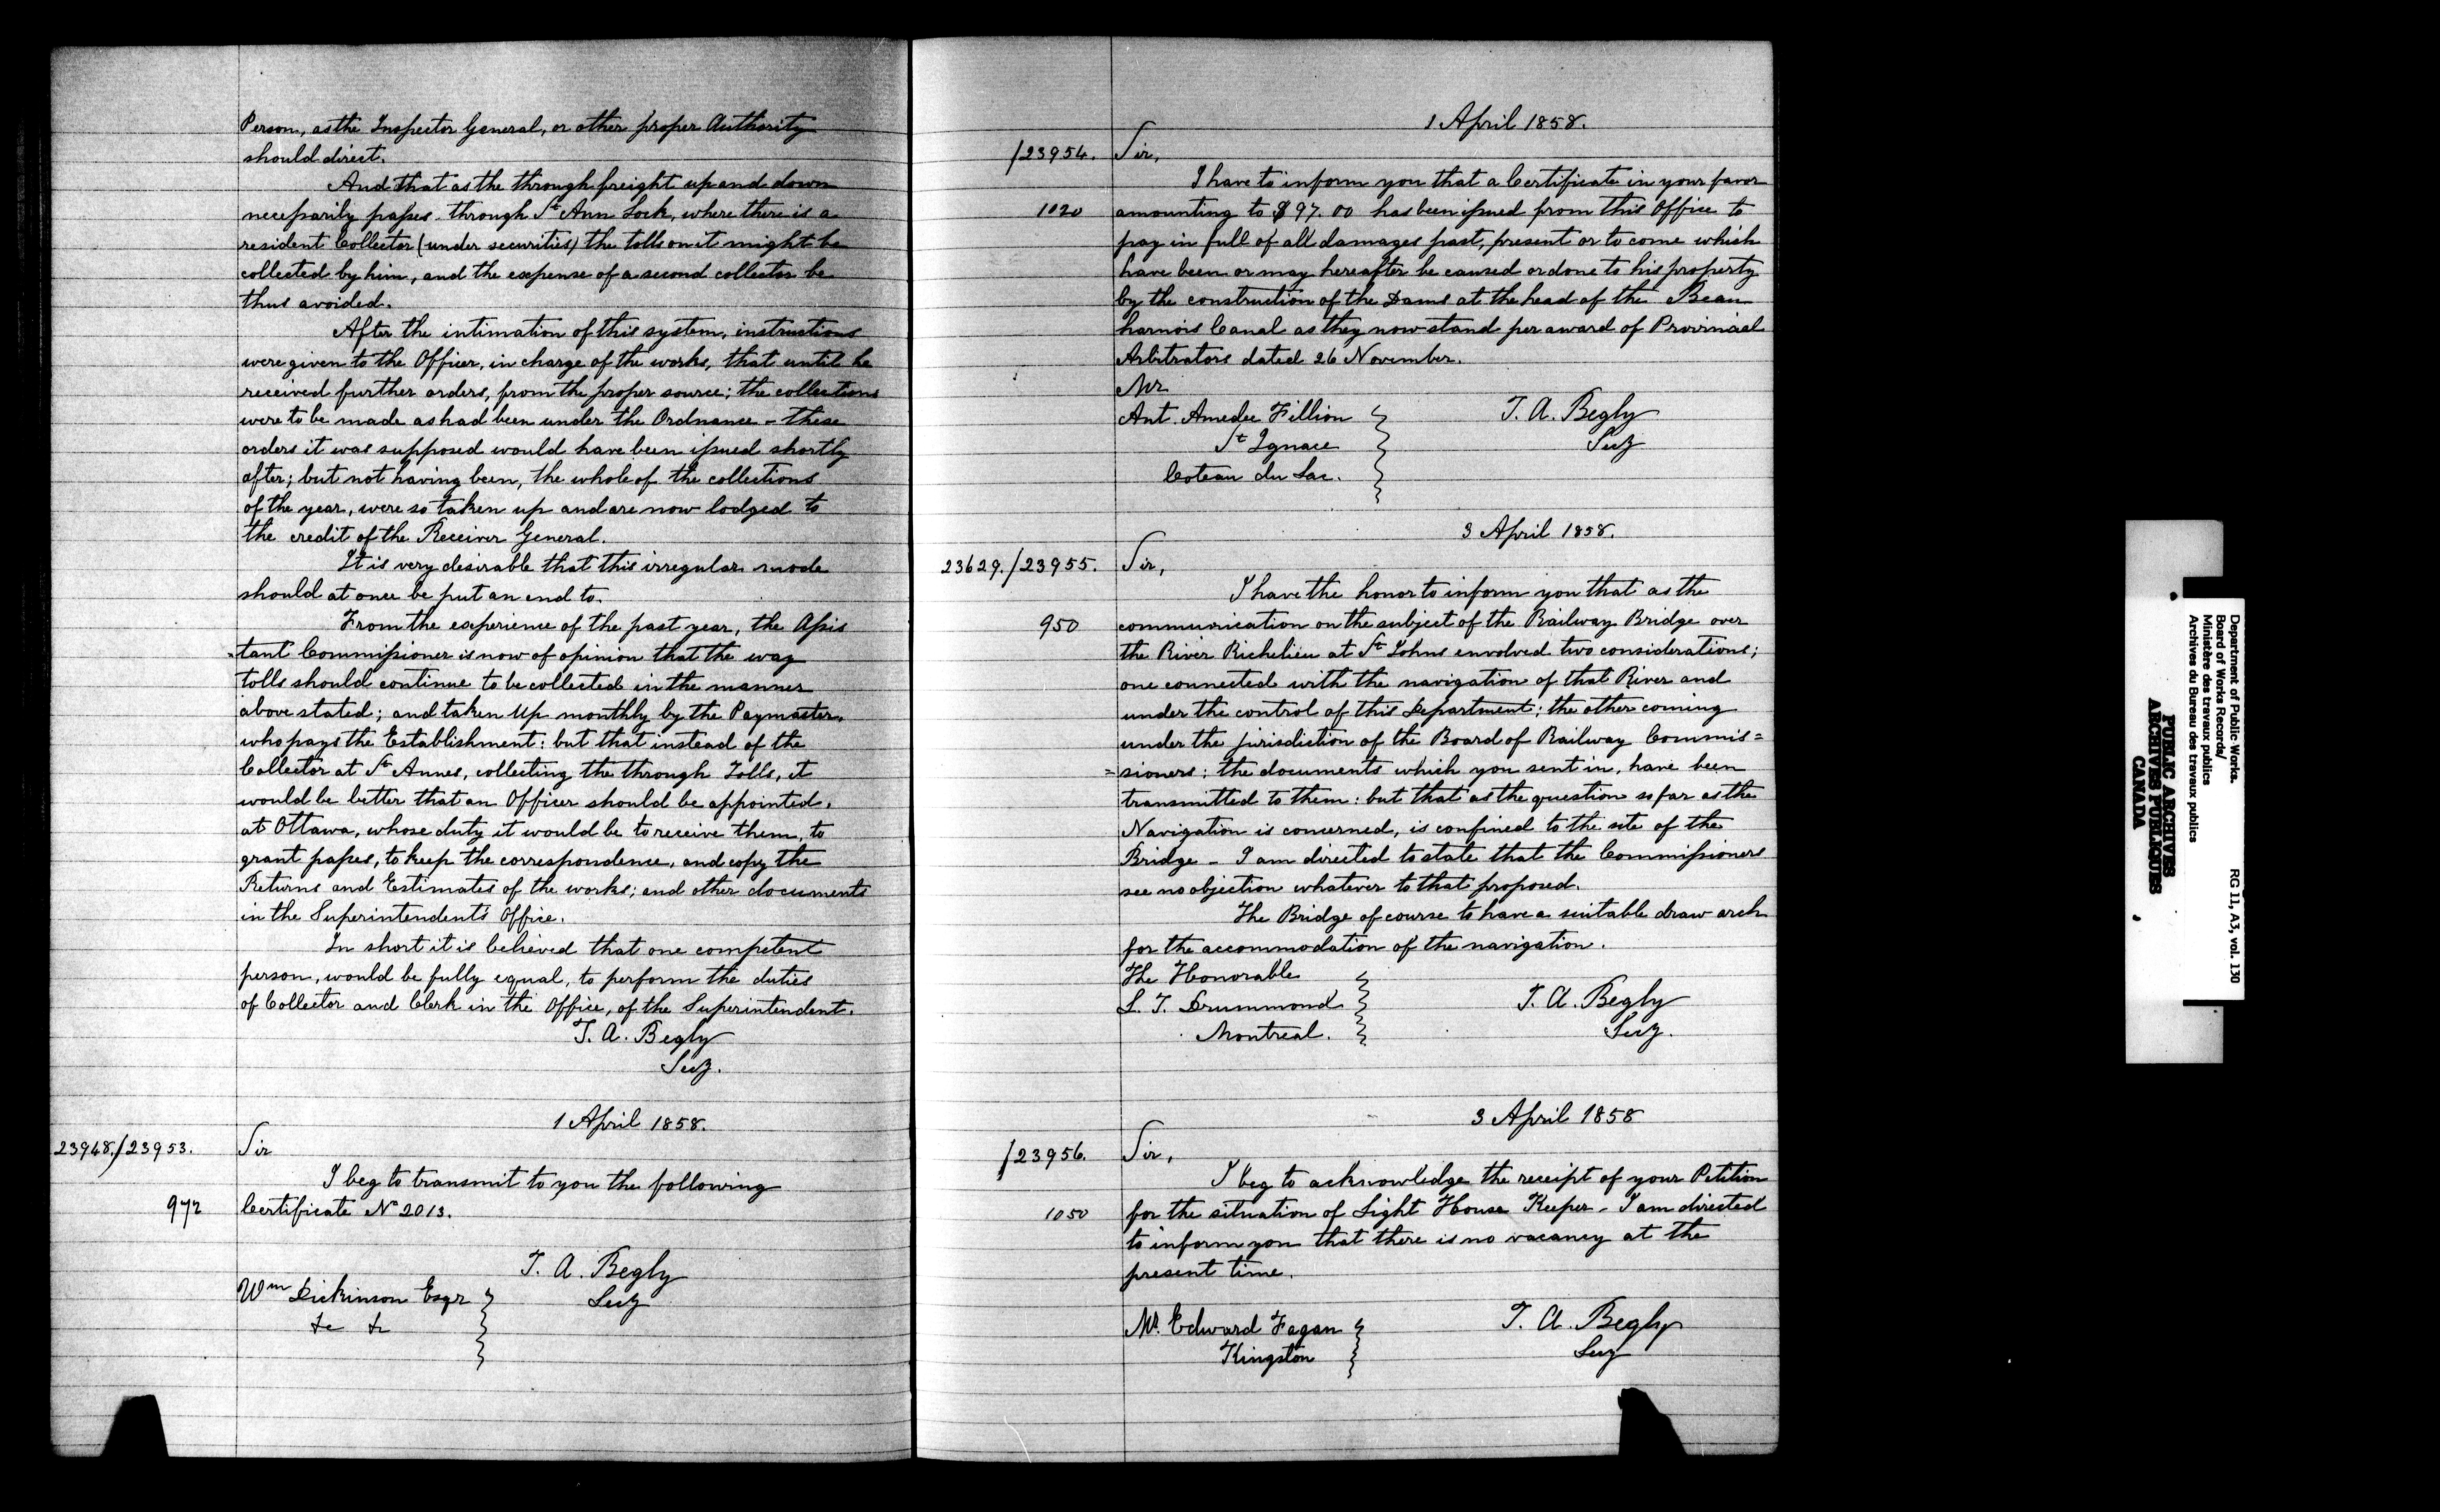 Person, as the Inspector General, or other proper Authority
should direct.
And that as the through freight up and down
necessarily passes through St Ann Lock, where there is a
resident Collector (under securities) the tolls on it might be
collected by him, and the expense of a second collector be
thus avoided.
After the intimation of this system, instructions
were given to the Officer, in charge of the works, that until he
received further orders, from the proper source; the collections
were to be made as had been under the Ordnance - these
orders it was supposed would have been issued shortly
after; but not having been, the whole of the collections
of the year, were so taken up and are now lodged to
the credit of the Receiver General.
It is very desirable that this irregular mode
should at once be put an end to.
From the experience of the past year, the Assis
-tant Commissioner is now of opinion that the way
tolls should continue to be collected in the manner
above stated; and taken up monthly by the Paymaster,
who pays the Establishment: but that instead of the
Collector at St Annes, collecting the through Tolls, it
would be better that an Officer should be appointed,
at Ottawa, whose duty it would be to receive them, to
grant passes, to keep the correspondence, and copy the
Returns and Estimates of the works; and other documents
in the Superintendent's Office.
In short it is believed that one competent
person, would be fully equal, to perform the duties
of Collector and Clerk in the Office, of the Superintendent.
T. A. Begly
Secy.
1 April 1858.
23948./23953.
Sir
I beg to transmit to you the following
972
Certificate No 2013.
T. A. Begly
Secy
Wm Dickinson Esqr
&c &c
1 April 1858.
/23954.
Sir,
I have to inform you that a Certificate in your favor
1020
amounting to $97.00 has been issued from this Office to
pay in full of all damages past, present or to come which
have been or may hereafter be caused or done to his property
by the construction of the Dams at the head of the Beau
harnois Canal as they now stand per award of Provincial
Arbitrators dated 26 November.
Mr
Ant. Amedee Fillion
St Ignace
Coteau du Lac.
T. A. Begly
Secy
3 April 1858.
23629./23955.
Sir,
I have the honor to inform you that as the
950
communication on the subject of the Railway Bridge over
the River Richelieu at St Johns envolved two considerations;
one connected with the navigation of that River and
under the control of this Department; the other coming
under the jurisdiction of the Board of Railway Commis=
=sioners: the documents which you sent in, have been
transmitted to them: but that as the question so far as the
Navigation is concerned, is confined to the site of the
Bridge - I am directed to state that the Commissioners
see no objection whatever to that proposed.
The Bridge of course to have a suitable draw arch
for the accommodation of the navigation.
The Honorable
L. T. Drummond
Montreal.
T. A. Begly
Secy.
3 April 1858
/23956.
Sir,
I beg to acknowledge the receipt of your Petition
1050
for the situation of Light House Keeper - I am directed
to inform you that there is no vacancy at the
present time.
Mr. Edward Fagan
Kingston
T. A. Begly
Secy
Department of Public Works.
Board of Works Records/
Ministère des travaux publics
Archives du Bureau des travaux publics
RG 11, A3, vol. 130
PUBLIC ARCHIVES
ARCHIVES PUBLIQUES
CANADA